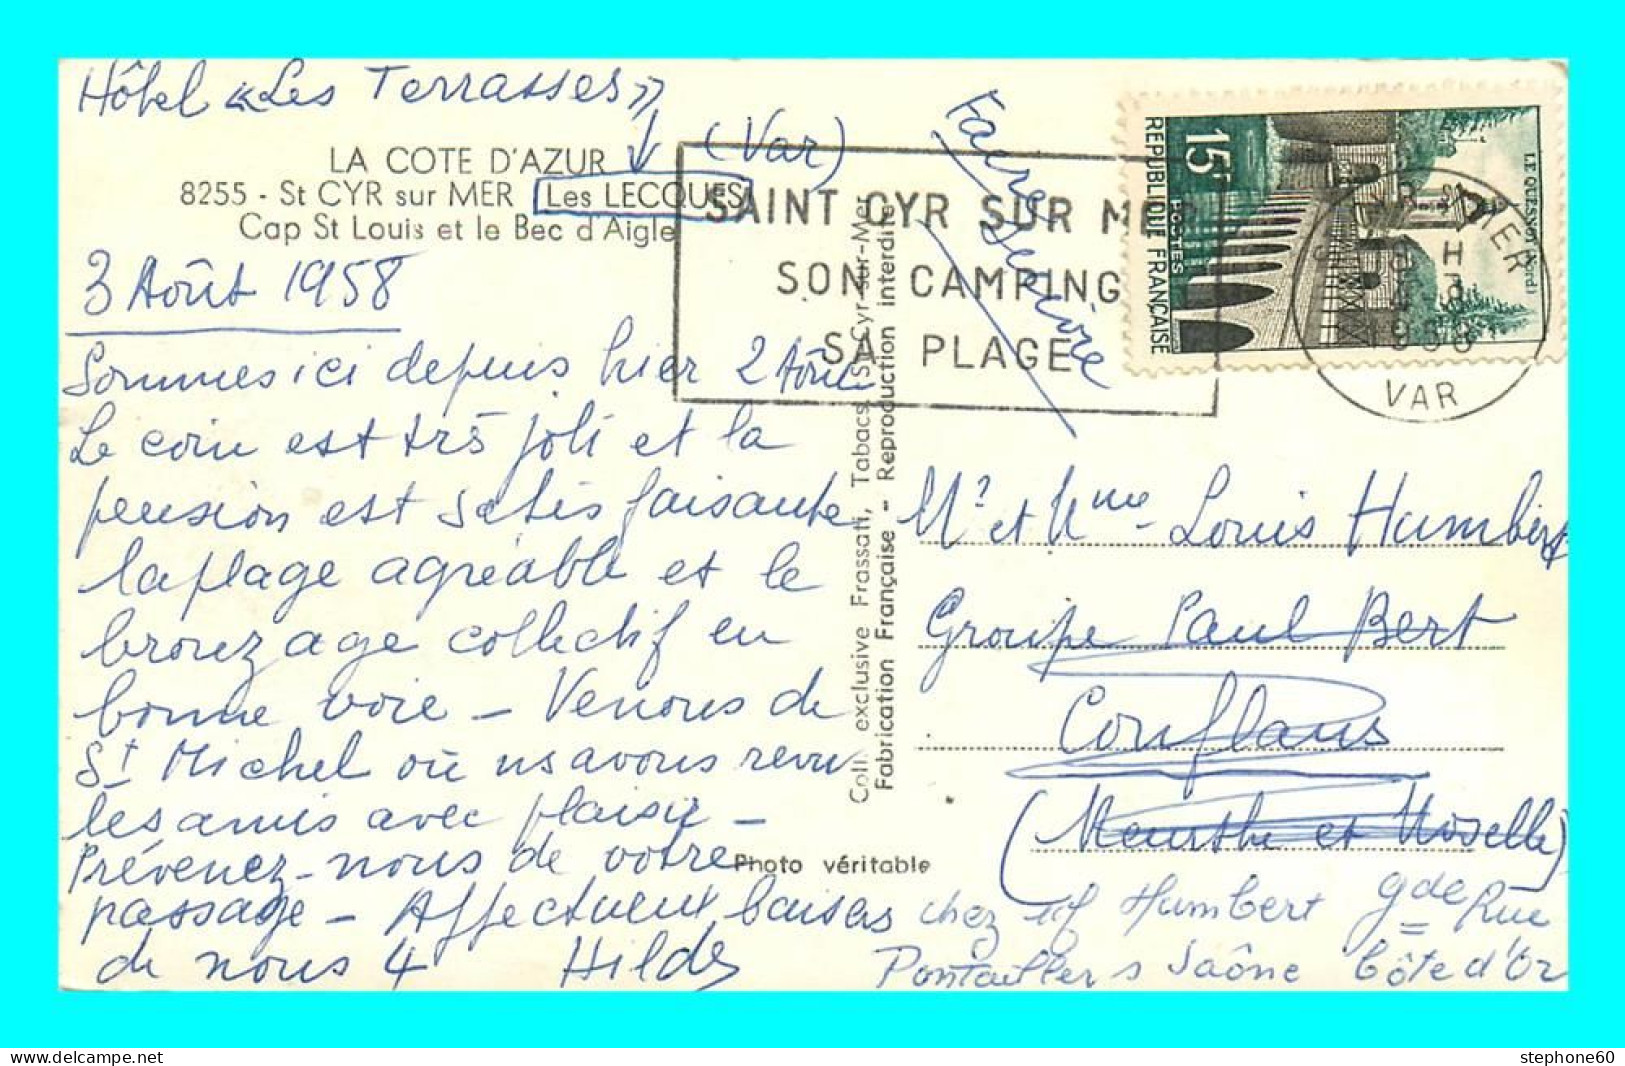 Hôtel «Les Terrasses»
(Var)
LA COTE D'AZUR
8255 - St CYR sur MER Les LECQUES
Cap St Louis et le Bec d'Aigle
3 Août 1958
Sommes ici depuis hier 2 Août
Le coin est très joli et la
pension est satisfaisante
la plage agréable et le
bronzage collectif en
bonne voie - Venons de
St Michel où ns avons revu
les amis avec plaisir -
Prévenez-nous de votre
passage - Affectueux baisers
de nous 4 Hilde
Coll. exclusive Frassati, Tabacs, St-Cyr-sur-Mer
Fabrication Française - Reproduction interdite
Photo véritable
SAINT CYR SUR MER
SON CAMPING
SA PLAGE
Faire suivre
15F
REPUBLIQUE FRANÇAISE
POSTES
LE QUESNOY (Nord)
MER
1958
VAR
Mr et Mme Louis Humbert
Groupe Paul Bert
Conflans
(Meurthe et Moselle)
chez Humbert gde Rue
Pontailler s Saône Côte d'Or
stephone60